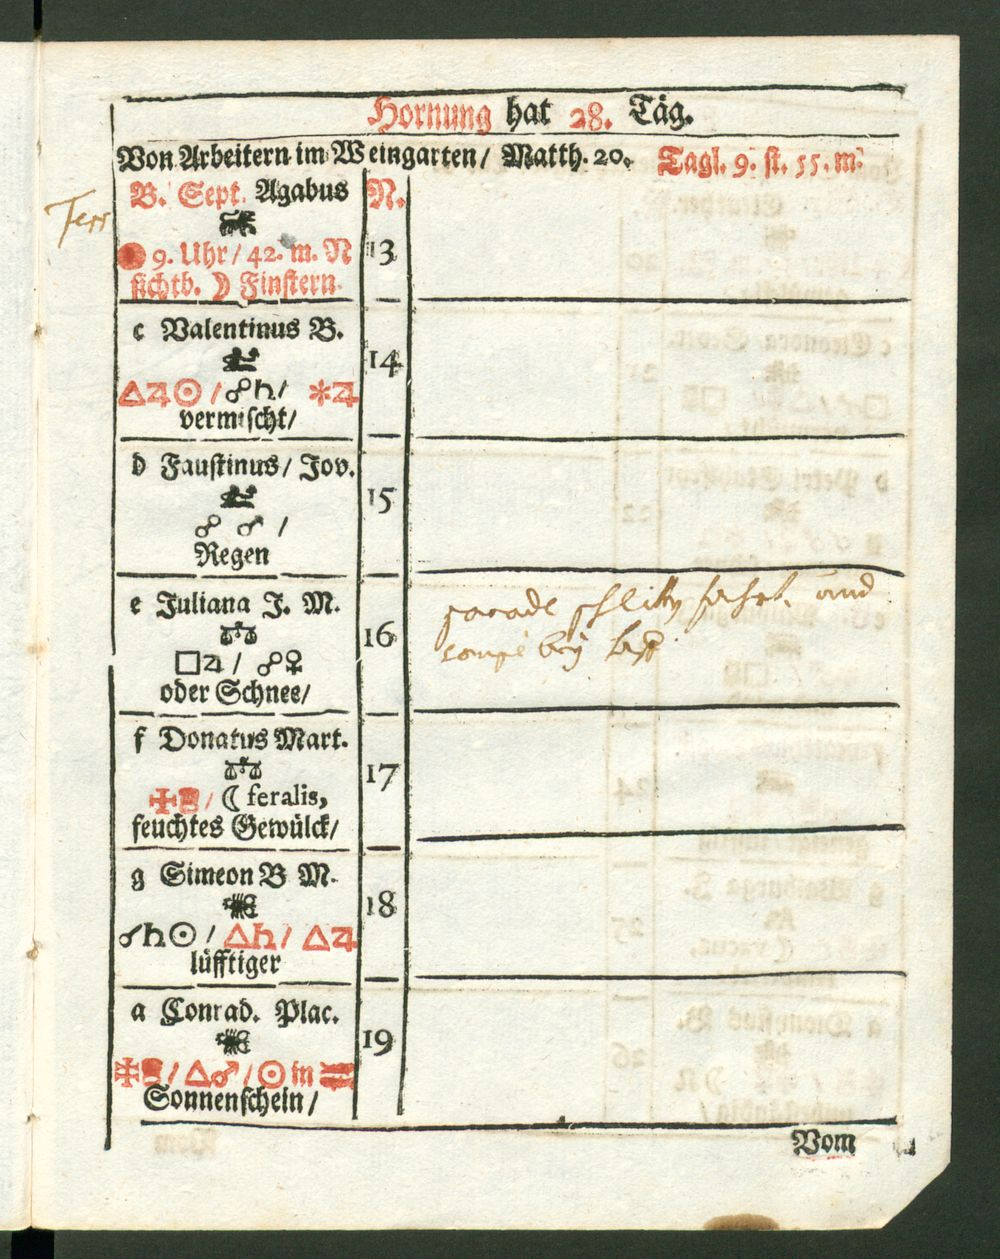 Hornung hat 28. Täg.
Von Arbeitern im Weingarten/ Matth. 20. Tagl. 9. st. 55. m.
B. Sept. Agabus N.
9. Uhr/ 42. m. N 13
sichtb. ☽ Finstern.
c Valentinus B.
14
△♃☉/☍♄/ ✱♃
vermischt/
d Faustinus/ Jov.
15
☍ ♂ /
Regen
e Juliana J. M.
16
□♃/ ☍♀
oder Schnee/
parade schlitten fahrt. und
soupé bey
f Donatus Mart.
17
/ ☾ feralis,
feuchtes Gewülck/
g Simeon B M.
18
☌♄☉/ △♄/ △♃
lüfftiger
a Conrad. Plac.
19
/ △♂/ ☉ in ♓
Sonnenschein/
Vom